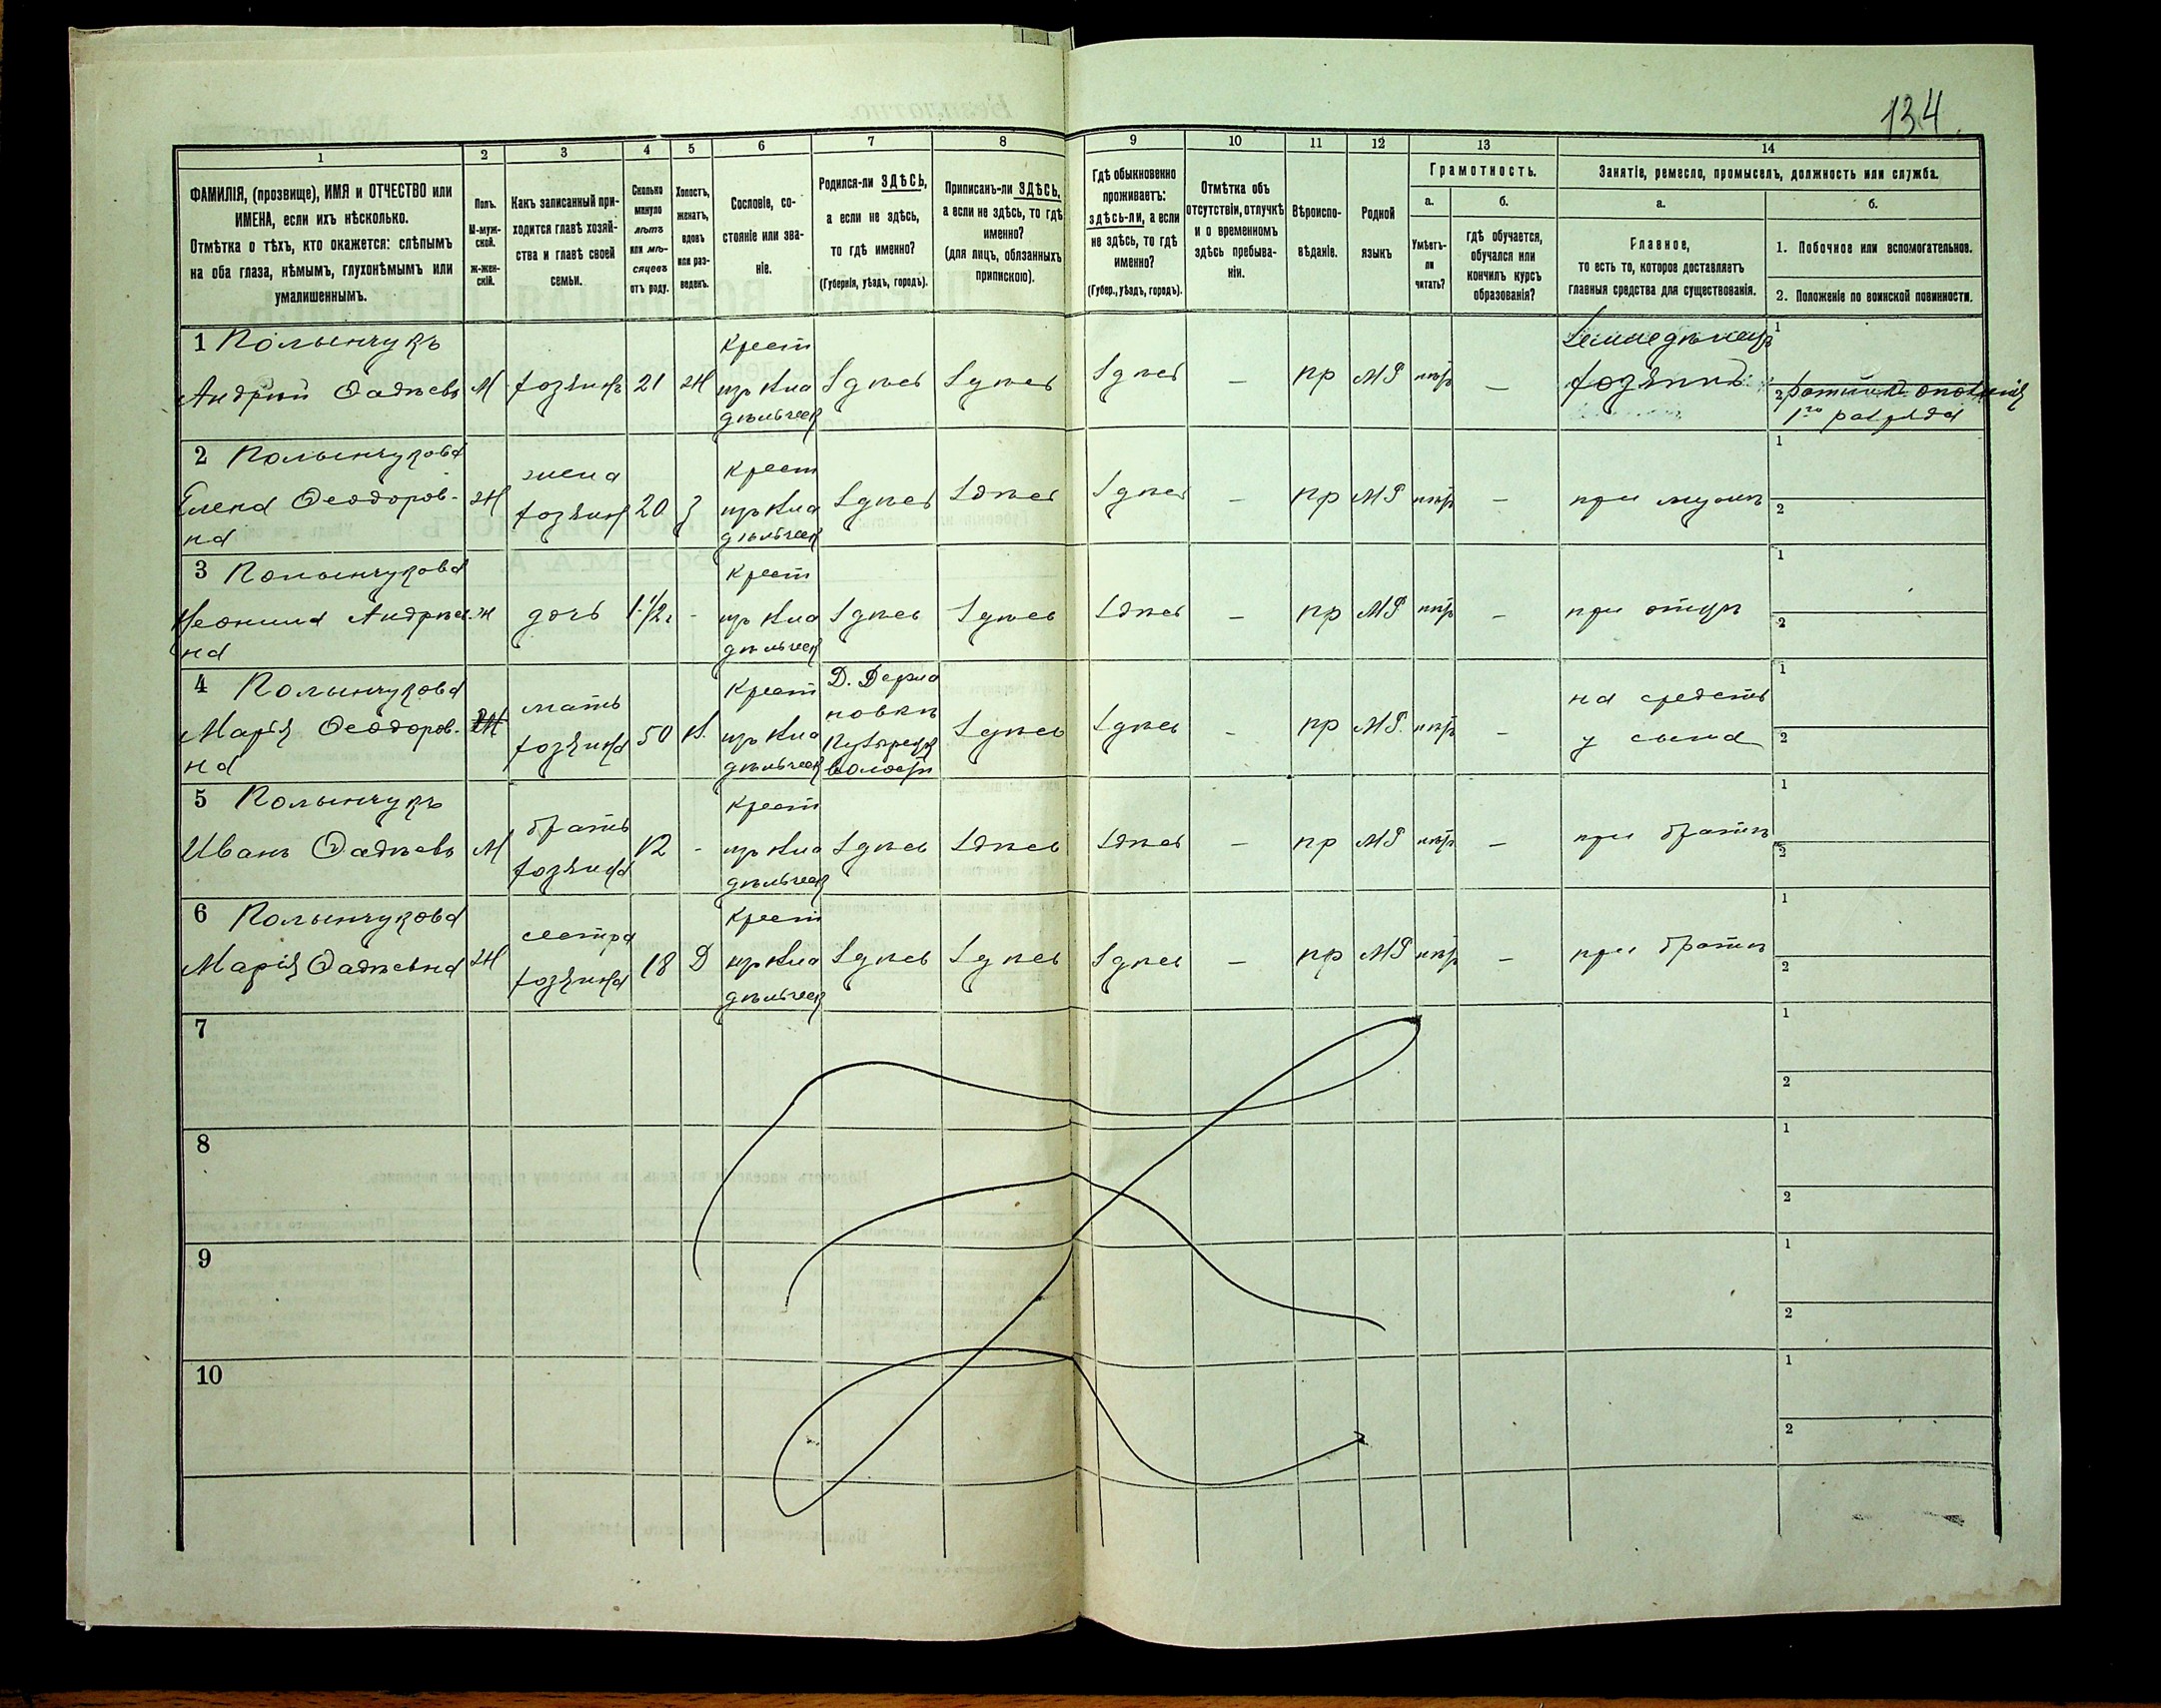 134.
1 2 3 4 5 6 7 8 9 10 11 12 13 14
ФАМИЛІЯ, (прозвище), ИМЯ и ОТЧЕСТВО или
ИМЕНА, если ихъ нѣсколько.
Отмѣтка о тѣхъ, кто окажется: слѣпымъ
на оба глаза, нѣмымъ, глухонѣмымъ или
умалишеннымъ.
Полъ.
М-муж-
ской.
Ж-жен-
скій.
Какъ записанный при-
ходится главѣ хозяй-
ства и главѣ своей
семьи.
Сколько
минуло
лѣтъ
или мѣ-
сяцевъ
отъ роду.
Холостъ,
женатъ,
вдовъ
или раз-
веденъ.
Сословіе, со-
стояніе или зва-
ніе.
Родился-ли ЗДѢСЬ,
а если не здѣсь,
то гдѣ именно?
(Губернія, уѣздъ, городъ).
Приписанъ-ли ЗДѢСЬ,
а если не здѣсь, то гдѣ
именно?
(для лицъ, обязанныхъ
припискою).
Гдѣ обыкновенно
проживаетъ:
здѣсь-ли, а если
не здѣсь, то гдѣ
именно?
(Губер., уѣздъ, городъ).
Отмѣтка объ
отсутствіи, отлучкѣ
и о временномъ
здѣсь пребыва-
ніи.
Вѣроиспо-
вѣданіе.
Родной
языкъ
Грамотность.
а.
Умѣетъ-
ли
читать?
б.
гдѣ обучается,
обучался или
кончилъ курсъ
образованія?
Занятіе, ремесло, промыселъ, должность или служба.
а.
Главное,
то есть то, которое доставляетъ
главныя средства для существованія.
б.
1. Побочное или вспомогательное.
2. Положеніе по воинской повинности.
1 Полынчукъ
Андрѣй Фадѣевъ
М
хозяинъ
21
Ж
крест
здѣсь
здѣсь
здѣсь
—
пр
МР
нѣтъ
—
хозяинъ
1
2
1го разряда
2 Полынчукова
Елена Феодоров-
на
Ж
жена
хозяин
20
З
крест
здѣсь
здѣсь
здѣсь
—
пр
МР
нѣтъ
—
при мужѣ
1
2
3 Полынчукова
Неонила Андрѣев
на
ж
дочь
1 1/2 г
-
крест
здѣсь
здѣсь
здѣсь
—
пр
МР
нѣтъ
—
при отцѣ
1
2
4 Полынчукова
Марія Феодоров-
на
Ж
мать
хозяина
50
В.
крест
Д. Дерма
новки
волости
здѣсь
здѣсь
—
пр
МР.
нѣтъ
—
на средств
у сына
1
2
5 Полынчукъ
Иванъ Фадѣевъ
М
братъ
хозяина
12
-
крест
здѣсь
здѣсь
здѣсь
—
пр
МР
нѣтъ
—
при братѣ
1
2
6 Полынчукова
Марія Фадѣевна
Ж
сестра
хозяина
18
Д
крест
здѣсь
здѣсь
здѣсь
—
пр
МР
нѣтъ
—
при братѣ
1
2
7
1
2
8
1
2
9
1
2
10
1
2